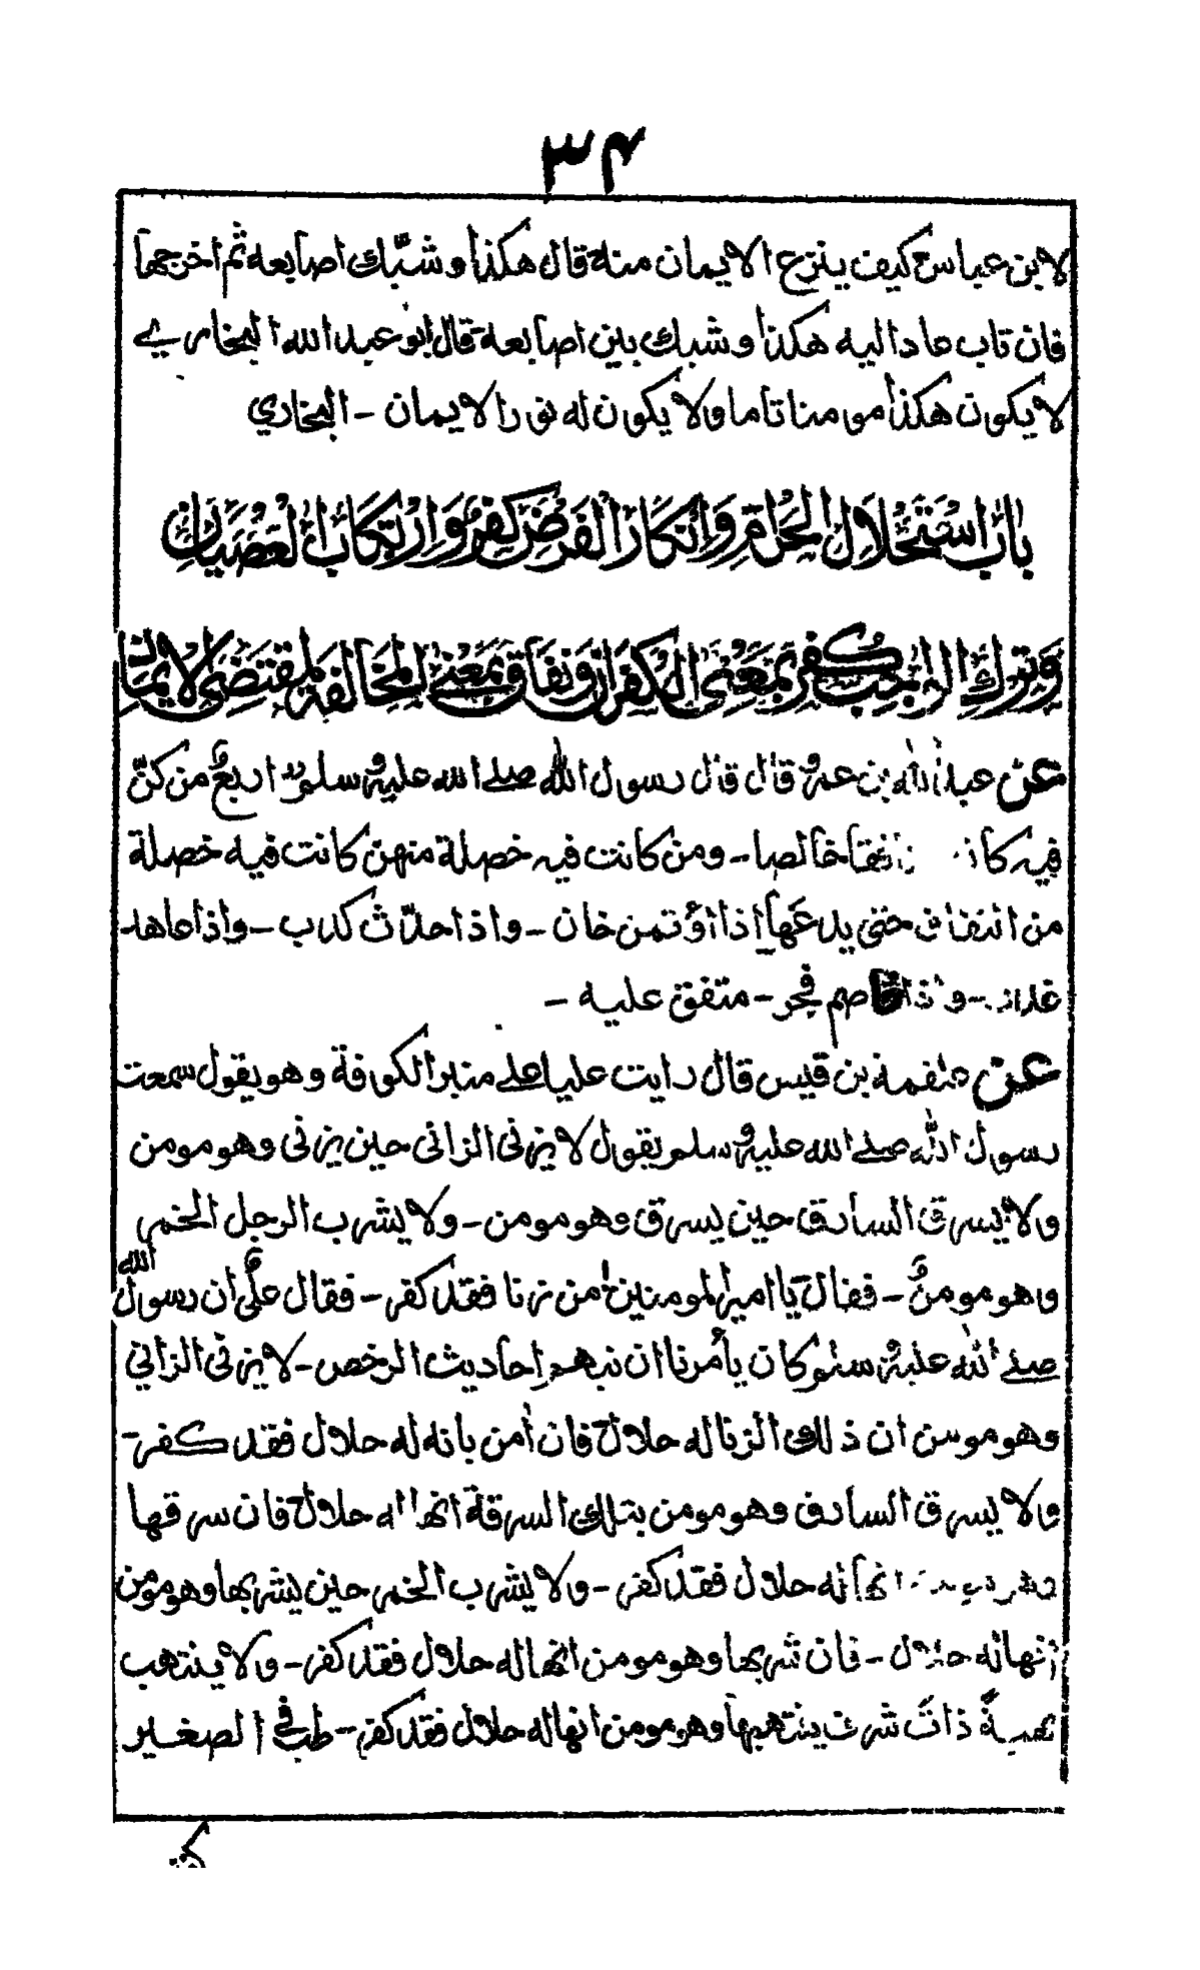 ۳۴
لابن عباس كيف ينزع الايمان منه قال هكذا وشبّك اصابعه ثم اخرجها
فان تاب عاد اليه هكذا وشبك بين اصابعه قال ابو عبد الله البخاري
لا يكون هكذا مومنا تاما ولا يكون له نور الايمان - البخاري
باب استحلال الحرام وانكار الفرض كفر وارتكاب العصيان
وترك الواجب كفر بمعنى الكفران ونفاق بمعنى المخالفة لمقتضى الايمان
عن عبد الله بن عمرو قال قال رسول الله صلے الله عليه وسلم اربع من كنّ
فيه كان منافقا خالصا - ومن كانت فيه خصلة منهن كانت فيه خصلة
من النفاق حتى يدعها اذا اؤتمن خان - واذا حدّث كذب - واذا عاهد
غدر - واذا خاصم فجر - متفق عليه -
عن علقمة بن قيس قال رايت عليا علے منبر الكوفة وهو يقول سمعت
رسول الله صلے الله عليه وسلم يقول لا يزنى الزانى حين يزنى وهو مومن
ولا يسرق السارق حين يسرق وهو مومن - ولا يشرب الرجل الخمر
وهو مومنٌ - فقال يا امير المومنين من زنا فقد كفر - فقال علي ان رسول الله
صلے الله عليه وسلم كان يأمرنا ان نبهم احاديث الرخص - لا يزنى الزاني
وهو مومن ان ذلك الزنا له حلال فان اٰمن بانه له حلال فقد كفر -
ولا يسرق السارق وهو مومن بتلك السرقة انها له حلال فان سرقها
انها له حلال فقد كفر - ولا يشرب الخمر حين يشربها وهو مومن
انها له حلال - فان شربها وهو مومن انها له حلال فقد كفر - ولا ينتهب
نهبة ذات شرف ينتهبها وهو مومن انها له حلال فقد كفر - طب فى الصغير